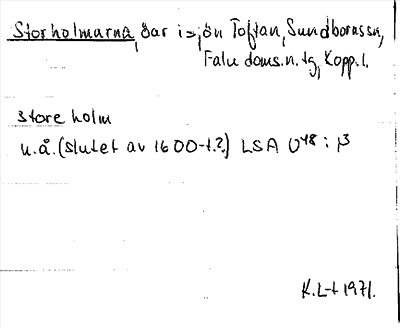 Storholmarna, öar i sjön Toftan, Sundbornssn,
Falu doms.n.tg, Kopp.l.
store holm
u.å. (slutet av 1600-t.?) LSA U48:
K.L-t 1971.